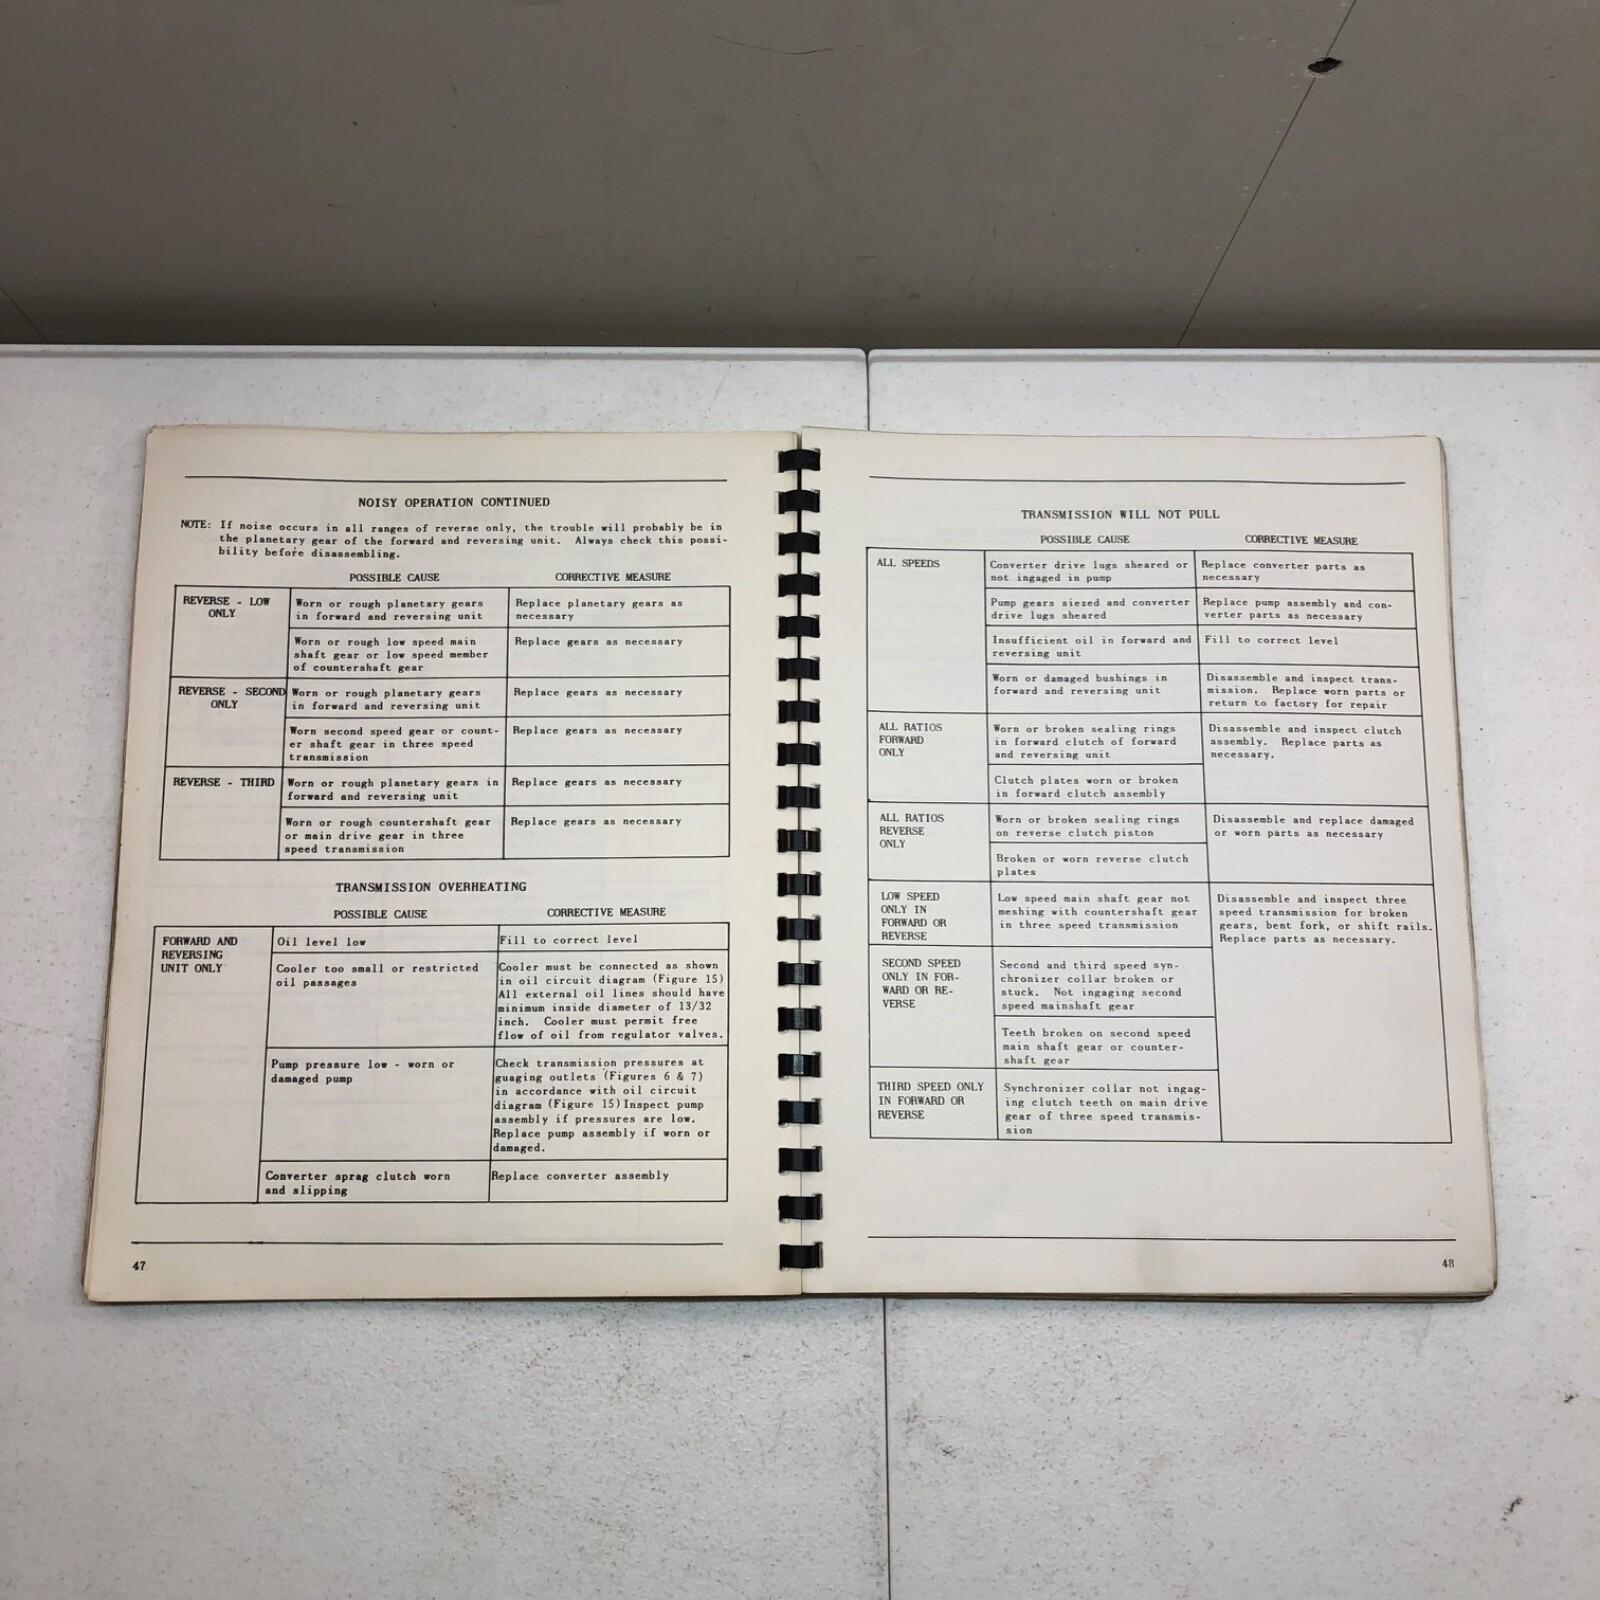 NOISY OPERATION CONTINUED
NOTE: If noise occurs in all ranges of reverse only, the trouble will probably be in
the planetary gear of the forward and reversing unit. Always check this possi-
bility before disassembling.
POSSIBLE CAUSE CORRECTIVE MEASURE
REVERSE - LOW
ONLY
Worn or rough planetary gears
in forward and reversing unit
Replace planetary gears as
necessary
Worn or rough low speed main
shaft gear or low speed member
of countershaft gear
Replace gears as necessary
REVERSE - SECOND
ONLY
Worn or rough planetary gears
in forward and reversing unit
Replace gears as necessary
Worn second speed gear or count-
er shaft gear in three speed
transmission
Replace gears as necessary
REVERSE - THIRD
Worn or rough planetary gears in
forward and reversing unit
Replace gears as necessary
Worn or rough countershaft gear
or main drive gear in three
speed transmission
Replace gears as necessary
TRANSMISSION OVERHEATING
POSSIBLE CAUSE CORRECTIVE MEASURE
FORWARD AND
REVERSING
UNIT ONLY
Oil level low
Fill to correct level
Cooler too small or restricted
oil passages
Cooler must be connected as shown
in oil circuit diagram (Figure 15)
All external oil lines should have
minimum inside diameter of 13/32
inch. Cooler must permit free
flow of oil from regulator valves.
Pump pressure low - worn or
damaged pump
Check transmission pressures at
guaging outlets (Figures 6 & 7)
in accordance with oil circuit
diagram (Figure 15) Inspect pump
assembly if pressures are low.
Replace pump assembly if worn or
damaged.
Converter sprag clutch worn
and slipping
Replace converter assembly
47
TRANSMISSION WILL NOT PULL
POSSIBLE CAUSE CORRECTIVE MEASURE
ALL SPEEDS
Converter drive lugs sheared or
not ingaged in pump
Replace converter parts as
necessary
Pump gears siezed and converter
drive lugs sheared
Replace pump assembly and con-
verter parts as necessary
Insufficient oil in forward and
reversing unit
Fill to correct level
Worn or damaged bushings in
forward and reversing unit
Disassemble and inspect trans-
mission. Replace worn parts or
return to factory for repair
ALL RATIOS
FORWARD
ONLY
Worn or broken sealing rings
in forward clutch of forward
and reversing unit
Disassemble and inspect clutch
assembly. Replace parts as
necessary.
Clutch plates worn or broken
in forward clutch assembly
ALL RATIOS
REVERSE
ONLY
Worn or broken sealing rings
on reverse clutch piston
Disassemble and replace damaged
or worn parts as necessary
Broken or worn reverse clutch
plates
LOW SPEED
ONLY IN
FORWARD OR
REVERSE
Low speed main shaft gear not
meshing with countershaft gear
in three speed transmission
Disassemble and inspect three
speed transmission for broken
gears, bent fork, or shift rails.
Replace parts as necessary.
SECOND SPEED
ONLY IN FOR-
WARD OR RE-
VERSE
Second and third speed syn-
chronizer collar broken or
stuck. Not ingaging second
speed mainshaft gear
Teeth broken on second speed
main shaft gear or counter-
shaft gear
THIRD SPEED ONLY
IN FORWARD OR
REVERSE
Synchronizer collar not ingag-
ing clutch teeth on main drive
gear of three speed transmis-
sion
48